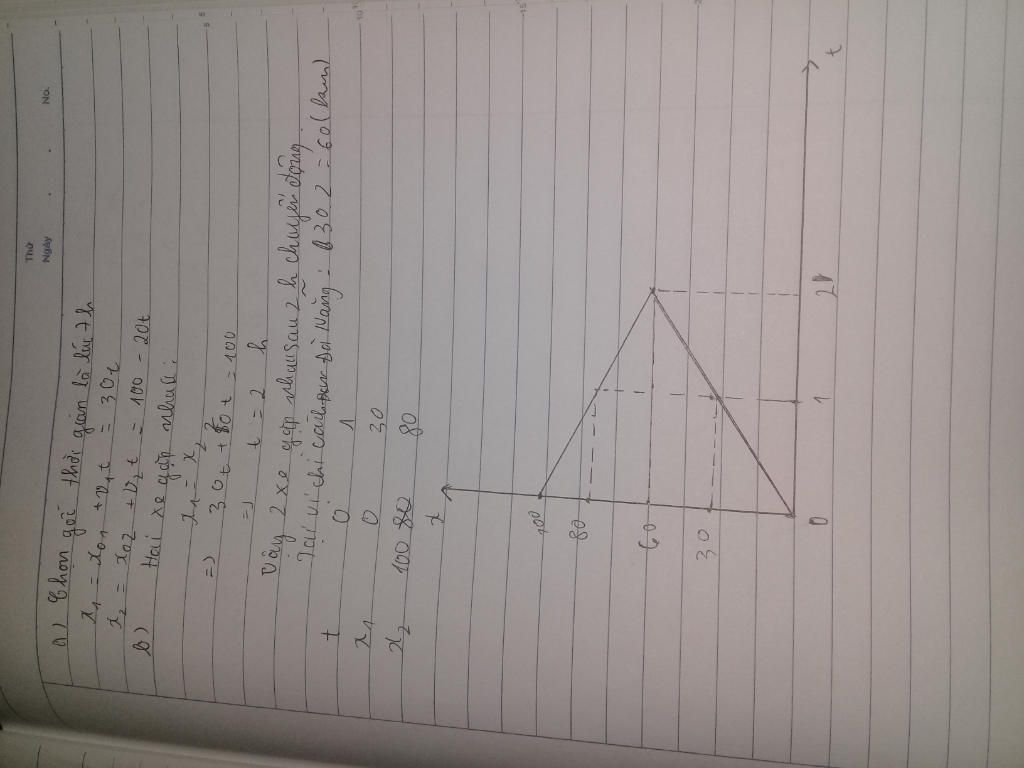 Thứ
Ngày . . No.
a) Chọn gốc thời gian là lúc 7h
x1 = x01 + v1t = 30t
x2 = x02 + v2t = 100 - 20t
b) Hai xe gặp nhau:
x1 = x2
=> 30t + 20t = 100
=> t = 2 h
Vậy 2 xe gặp nhau sau 2h chuyển động
Tại vị trí cách Đà Nẵng: 30.2 = 60 (km)
t 0 1
x1 0 30
x2 100 80
x
100
80
60
30
0 1 2 t
5
10
15